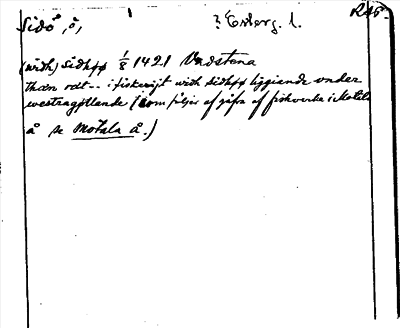 Sidö, ö, ? Österg. l. RAP.
(widh) Sidhøø 1/8 1421 Vadstena
thæn ræt -- i fiskerijt widh sidhøø liggiande vnder
westragøtlande (som följer af gåfva af fiskverke i Motala
å se Motala å.)